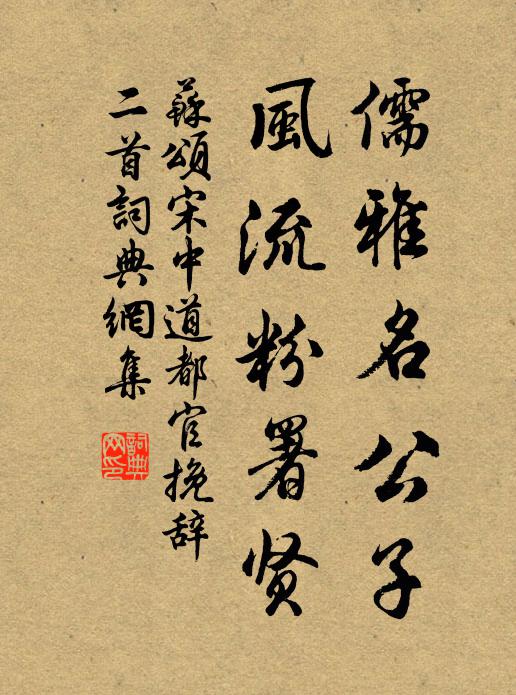 儒雅名公子
風流粉署贤
蘇頌宋中道都官挽辞
二首詞典網集
詞典
网印